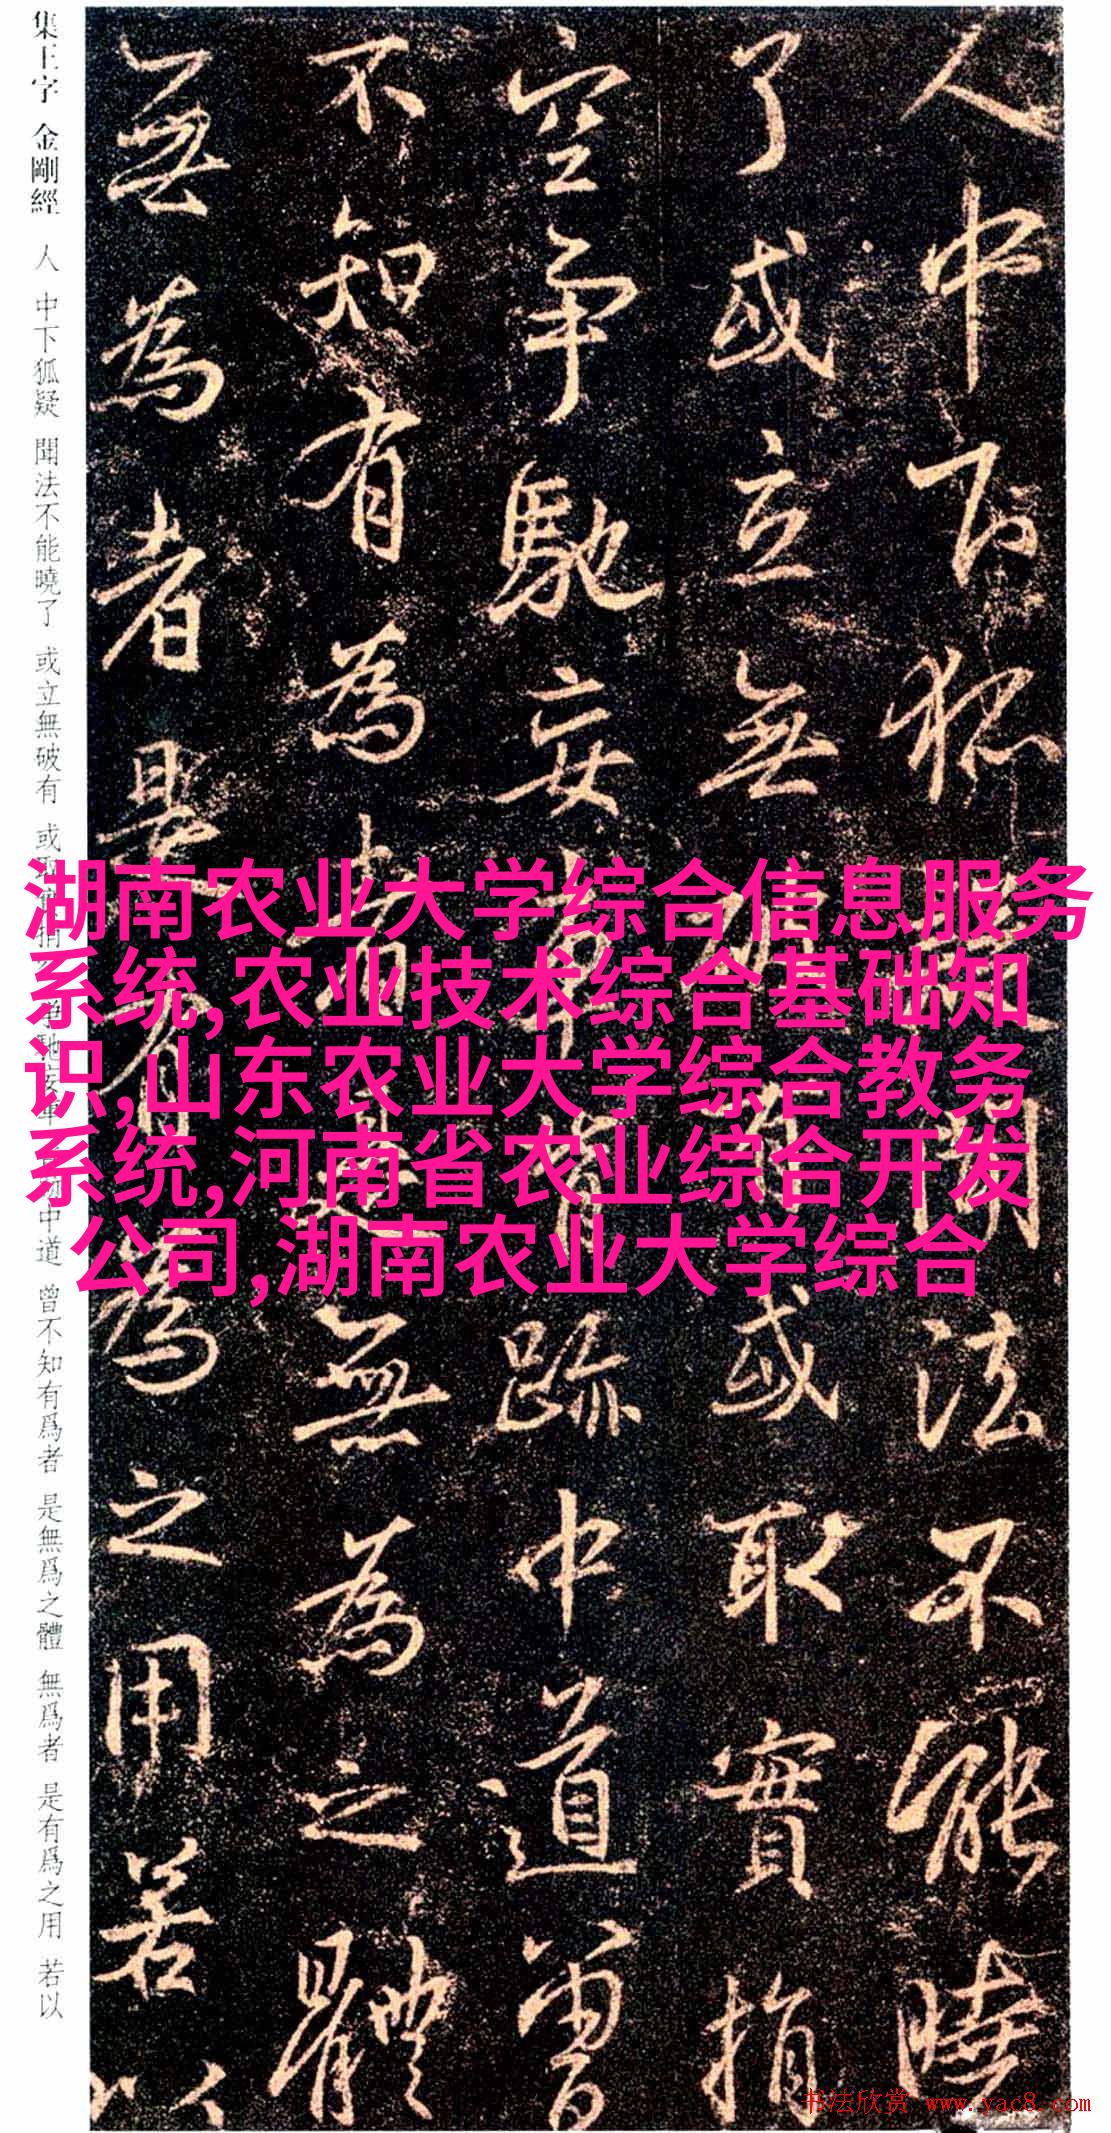 人中下狐疑聞法不能曉
了或立無破有或取實捐
空爭馳妄車背跡中道曾
不知有為者是無為之體
無為者是有為之用若以
集王字 金剛經 人 中下狐疑 聞法不能曉了 或立無破有 或 馳妄車 中道 曾不知有爲者 是無爲之體 無爲者 是有爲之用 若以
湖南农业大学综合信息服务
系统,农业技术综合基础知
识,山东农业大学综合教务
系统,河南省农业综合开发
公司,湖南农业大学综合
书法欣赏 www.yac8.com